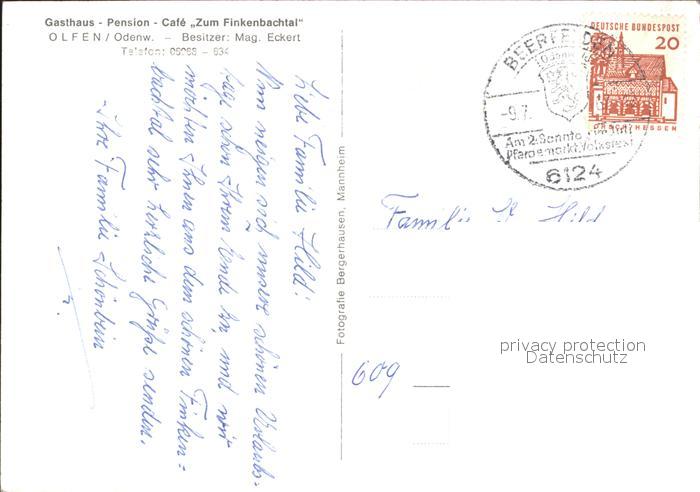 Gasthaus - Pension - Café „Zum Finkenbachtal“
OLFEN/Odenw. – Besitzer: Mag. Eckert
Telefon: 06068 – 634
Liebe Familie Hild!
Nun neigen sich unsere schönen Urlaubs-
tage schon Ihrem Ende zu, und wir
möchten Ihnen aus dem schönen Finken=
bachtal sehr herzliche Grüße senden.
Ihre Familie Schönbein
Fotografie Bergerhausen, Mannheim
BEERFELDEN
-9.7.
Am 2. Sonntag
Pferdemarkt, Volksfest
6124
DEUTSCHE BUNDESPOST
20
LORSCH/HESSEN
Familie K Hild
609
privacy protection
Datenschutz